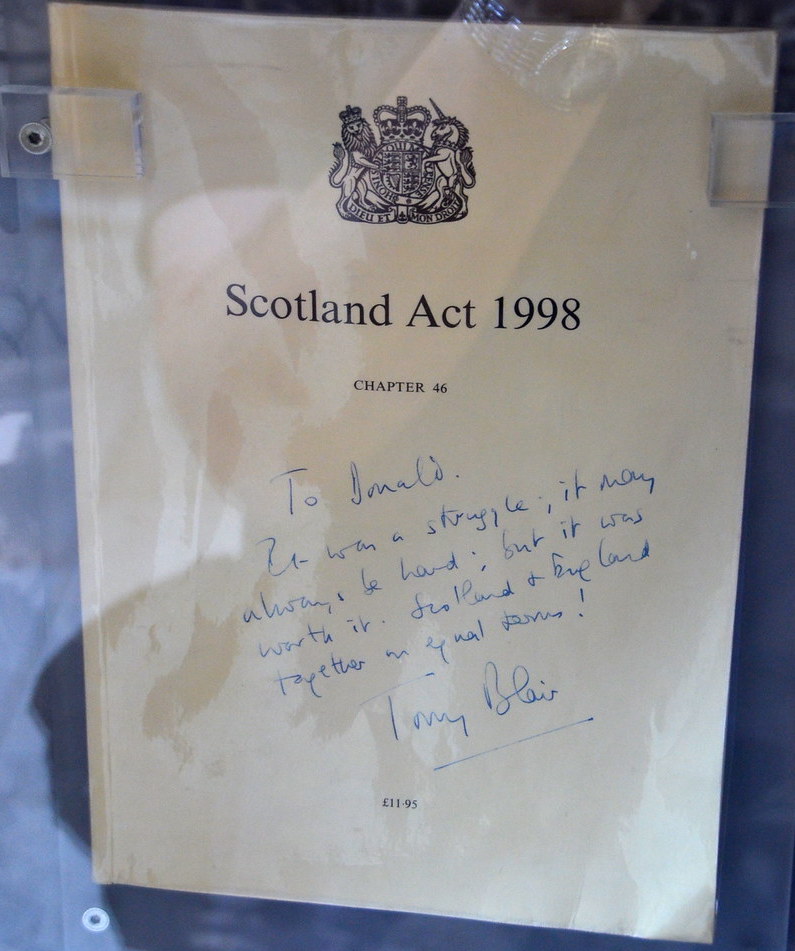 DIEU ET MON DROIT
Scotland Act 1998
CHAPTER 46
To Donald.
It was a struggle; it may
always be hard; but it was
worth it. Scotland & England
together on equal terms!
Tony Blair
£11·95